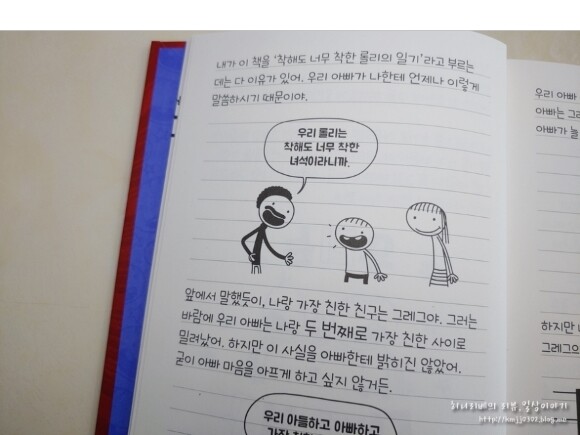 내가 이 책을 '착해도 너무 착한 롤리의 일기'라고 부르는
데는 다 이유가 있어. 우리 아빠가 나한테 언제나 이렇게
말씀하시기 때문이야.
우리 롤리는
착해도 너무 착한
녀석이라니까.
앞에서 말했듯이, 나랑 가장 친한 친구는 그레그야. 그러는
바람에 우리 아빠는 나랑 두 번째로 가장 친한 사이로
밀려났어. 하지만 이 사실을 아빠한테 밝히진 않았어.
굳이 아빠 마음을 아프게 하고 싶지 않거든.
우리 아들하고 아빠하고
우리 아빠
아빠는 그레
아빠가 늘
하지만
그레그의